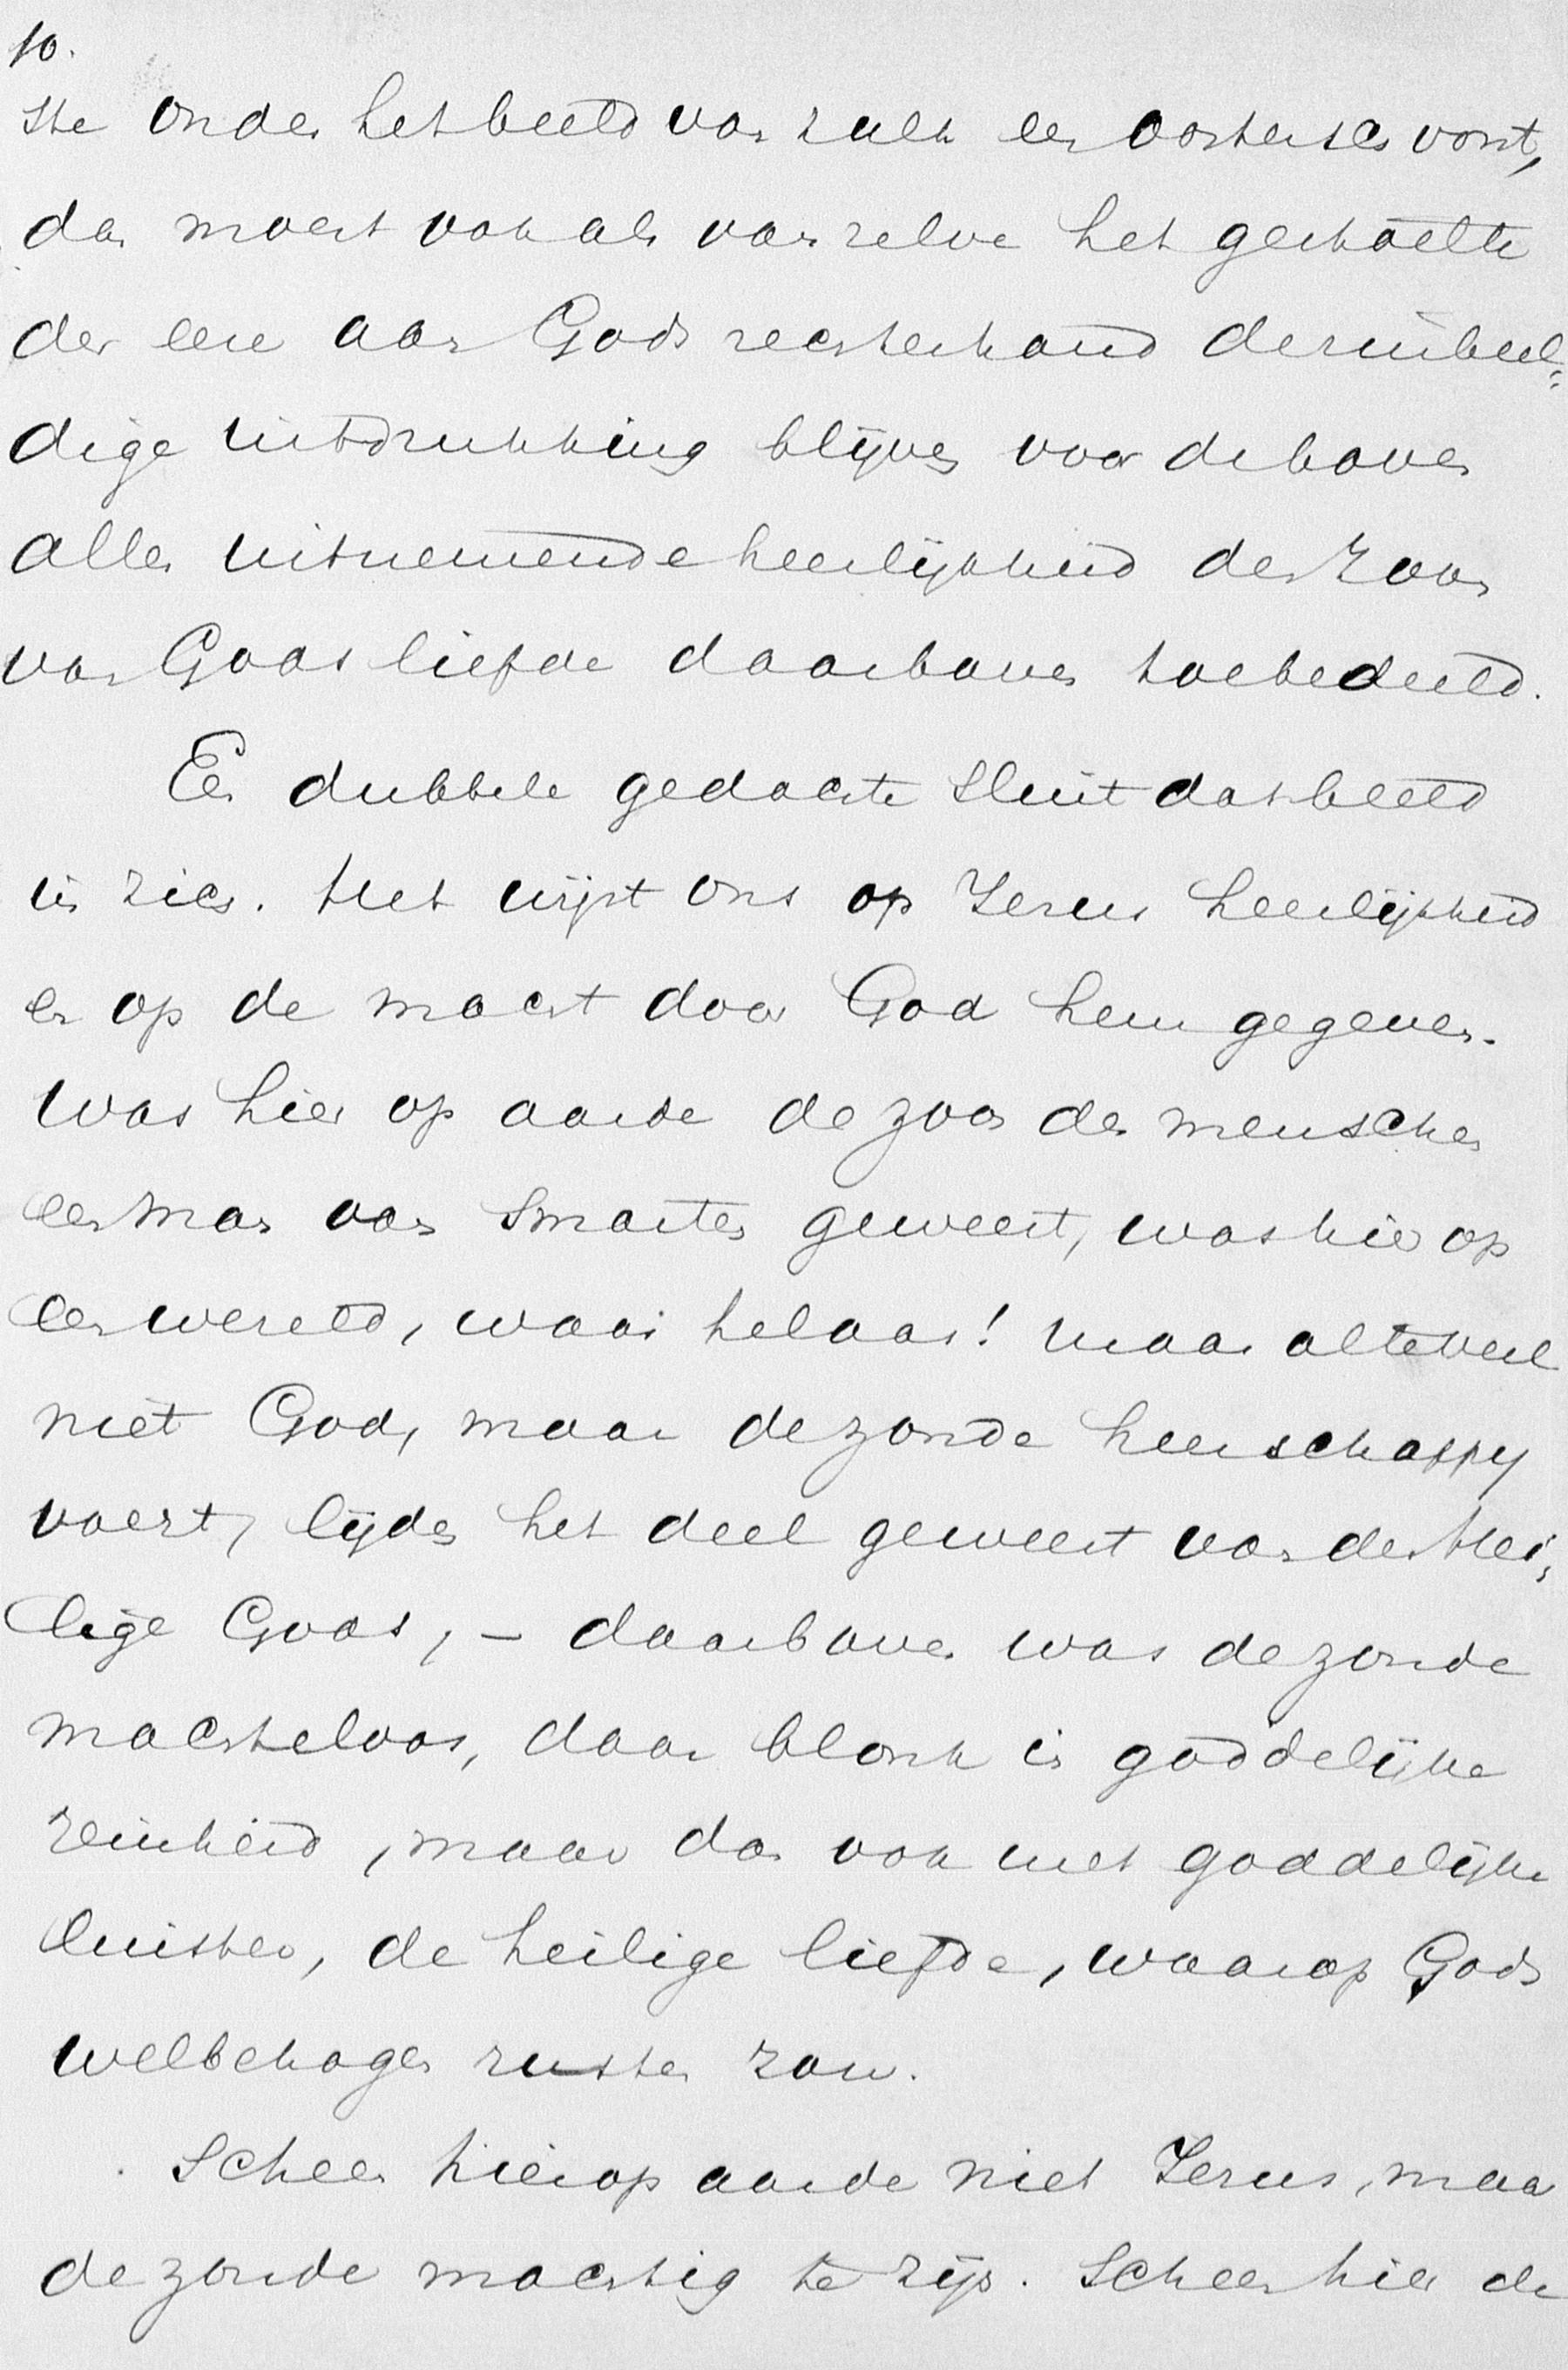 10.
ste onder het beeld van zulk een oostersch vorst,
dan moest ook als van zelve het gestoelte
der eere aan Gods rechterhand de zinbeel=
dige uitdrukking blijven voor de boven
alles uitnemende heerlijkheid den Zoon
van Gods liefde daarboven toebedeeld.
Een dubbele gedachte sluit dat beeld
in zich. Het wijst ons op Jezus heerlijkheid
en op de macht door God hem gegeven.
Was hier op aarde de zoon des menschen
een man van smarten geweest, was hier op
een wereld, waar helaas! maar al te veel
niet God, maar de zonde heerschappy
voert, lijden het deel geweest van den Hei=
lige Gods, – daarboven was de zonde
machteloos, daar blonk in goddelijke
reinheid, maar dan ook met goddelijke
luister, de heilige liefde, waarop Gods
welbehagen rusten zou.
Scheen hier op aarde niet Jezus, maar
de zonde machtig te zijn. Scheen hier de